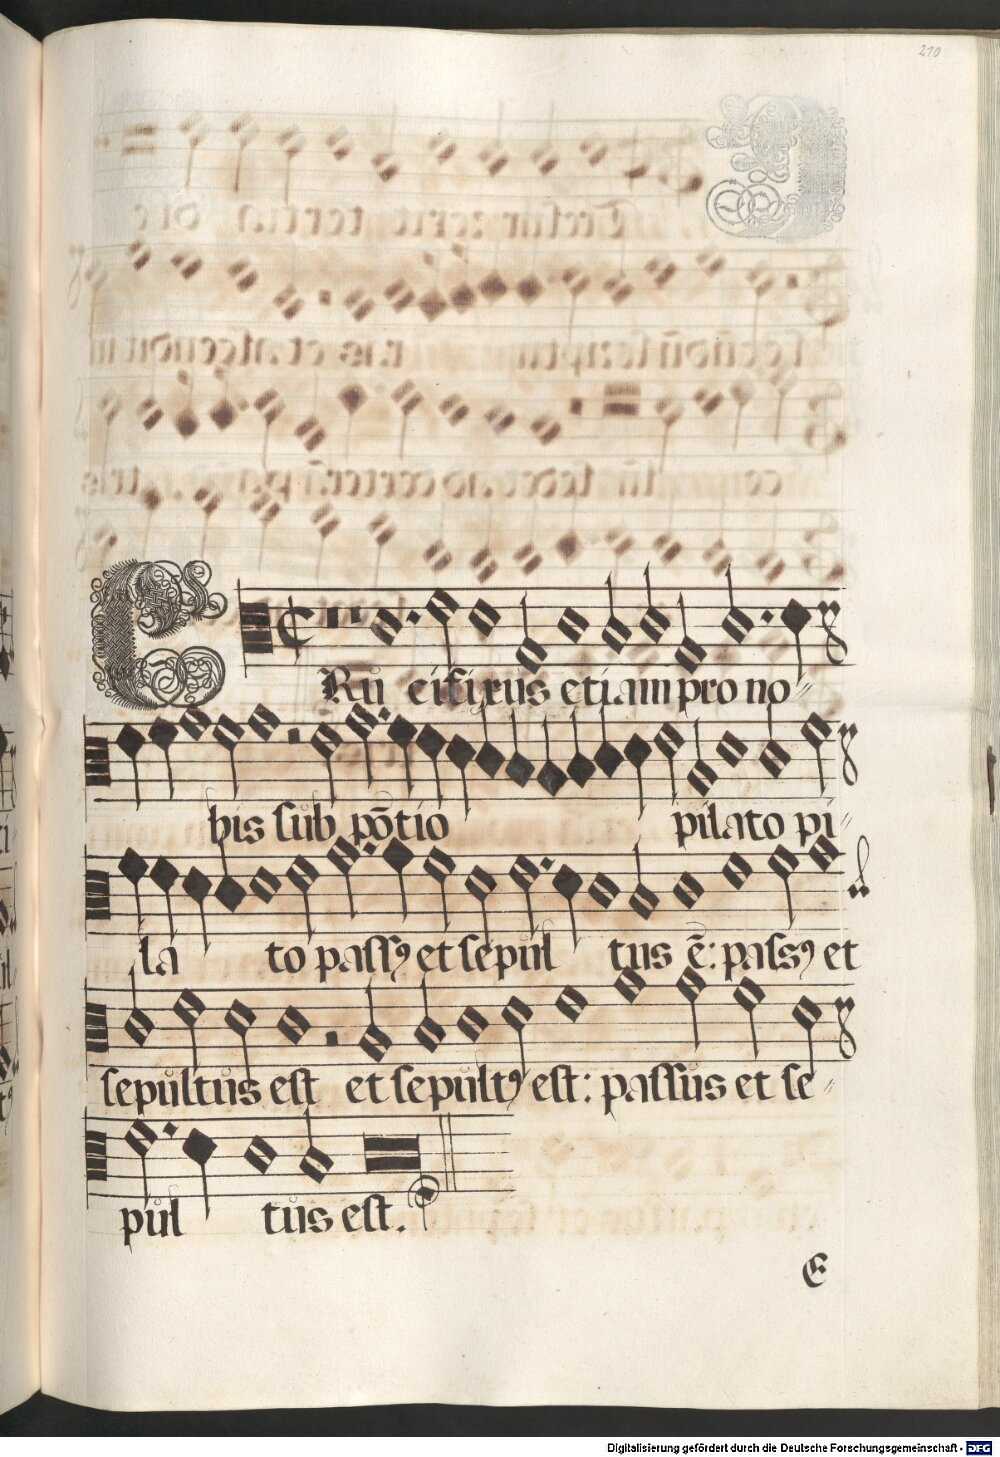 210
CRu cifixus etiam pro no〃
bis sub põtio pilato pi〃
la to passꝰ et sepul tus ē: passꝰ et
sepultus est et sepultꝰ est: passus et se〃
pul tus est.
E
Digitalisierung gefördert durch die Deutsche Forschungsgemeinschaft - DFG